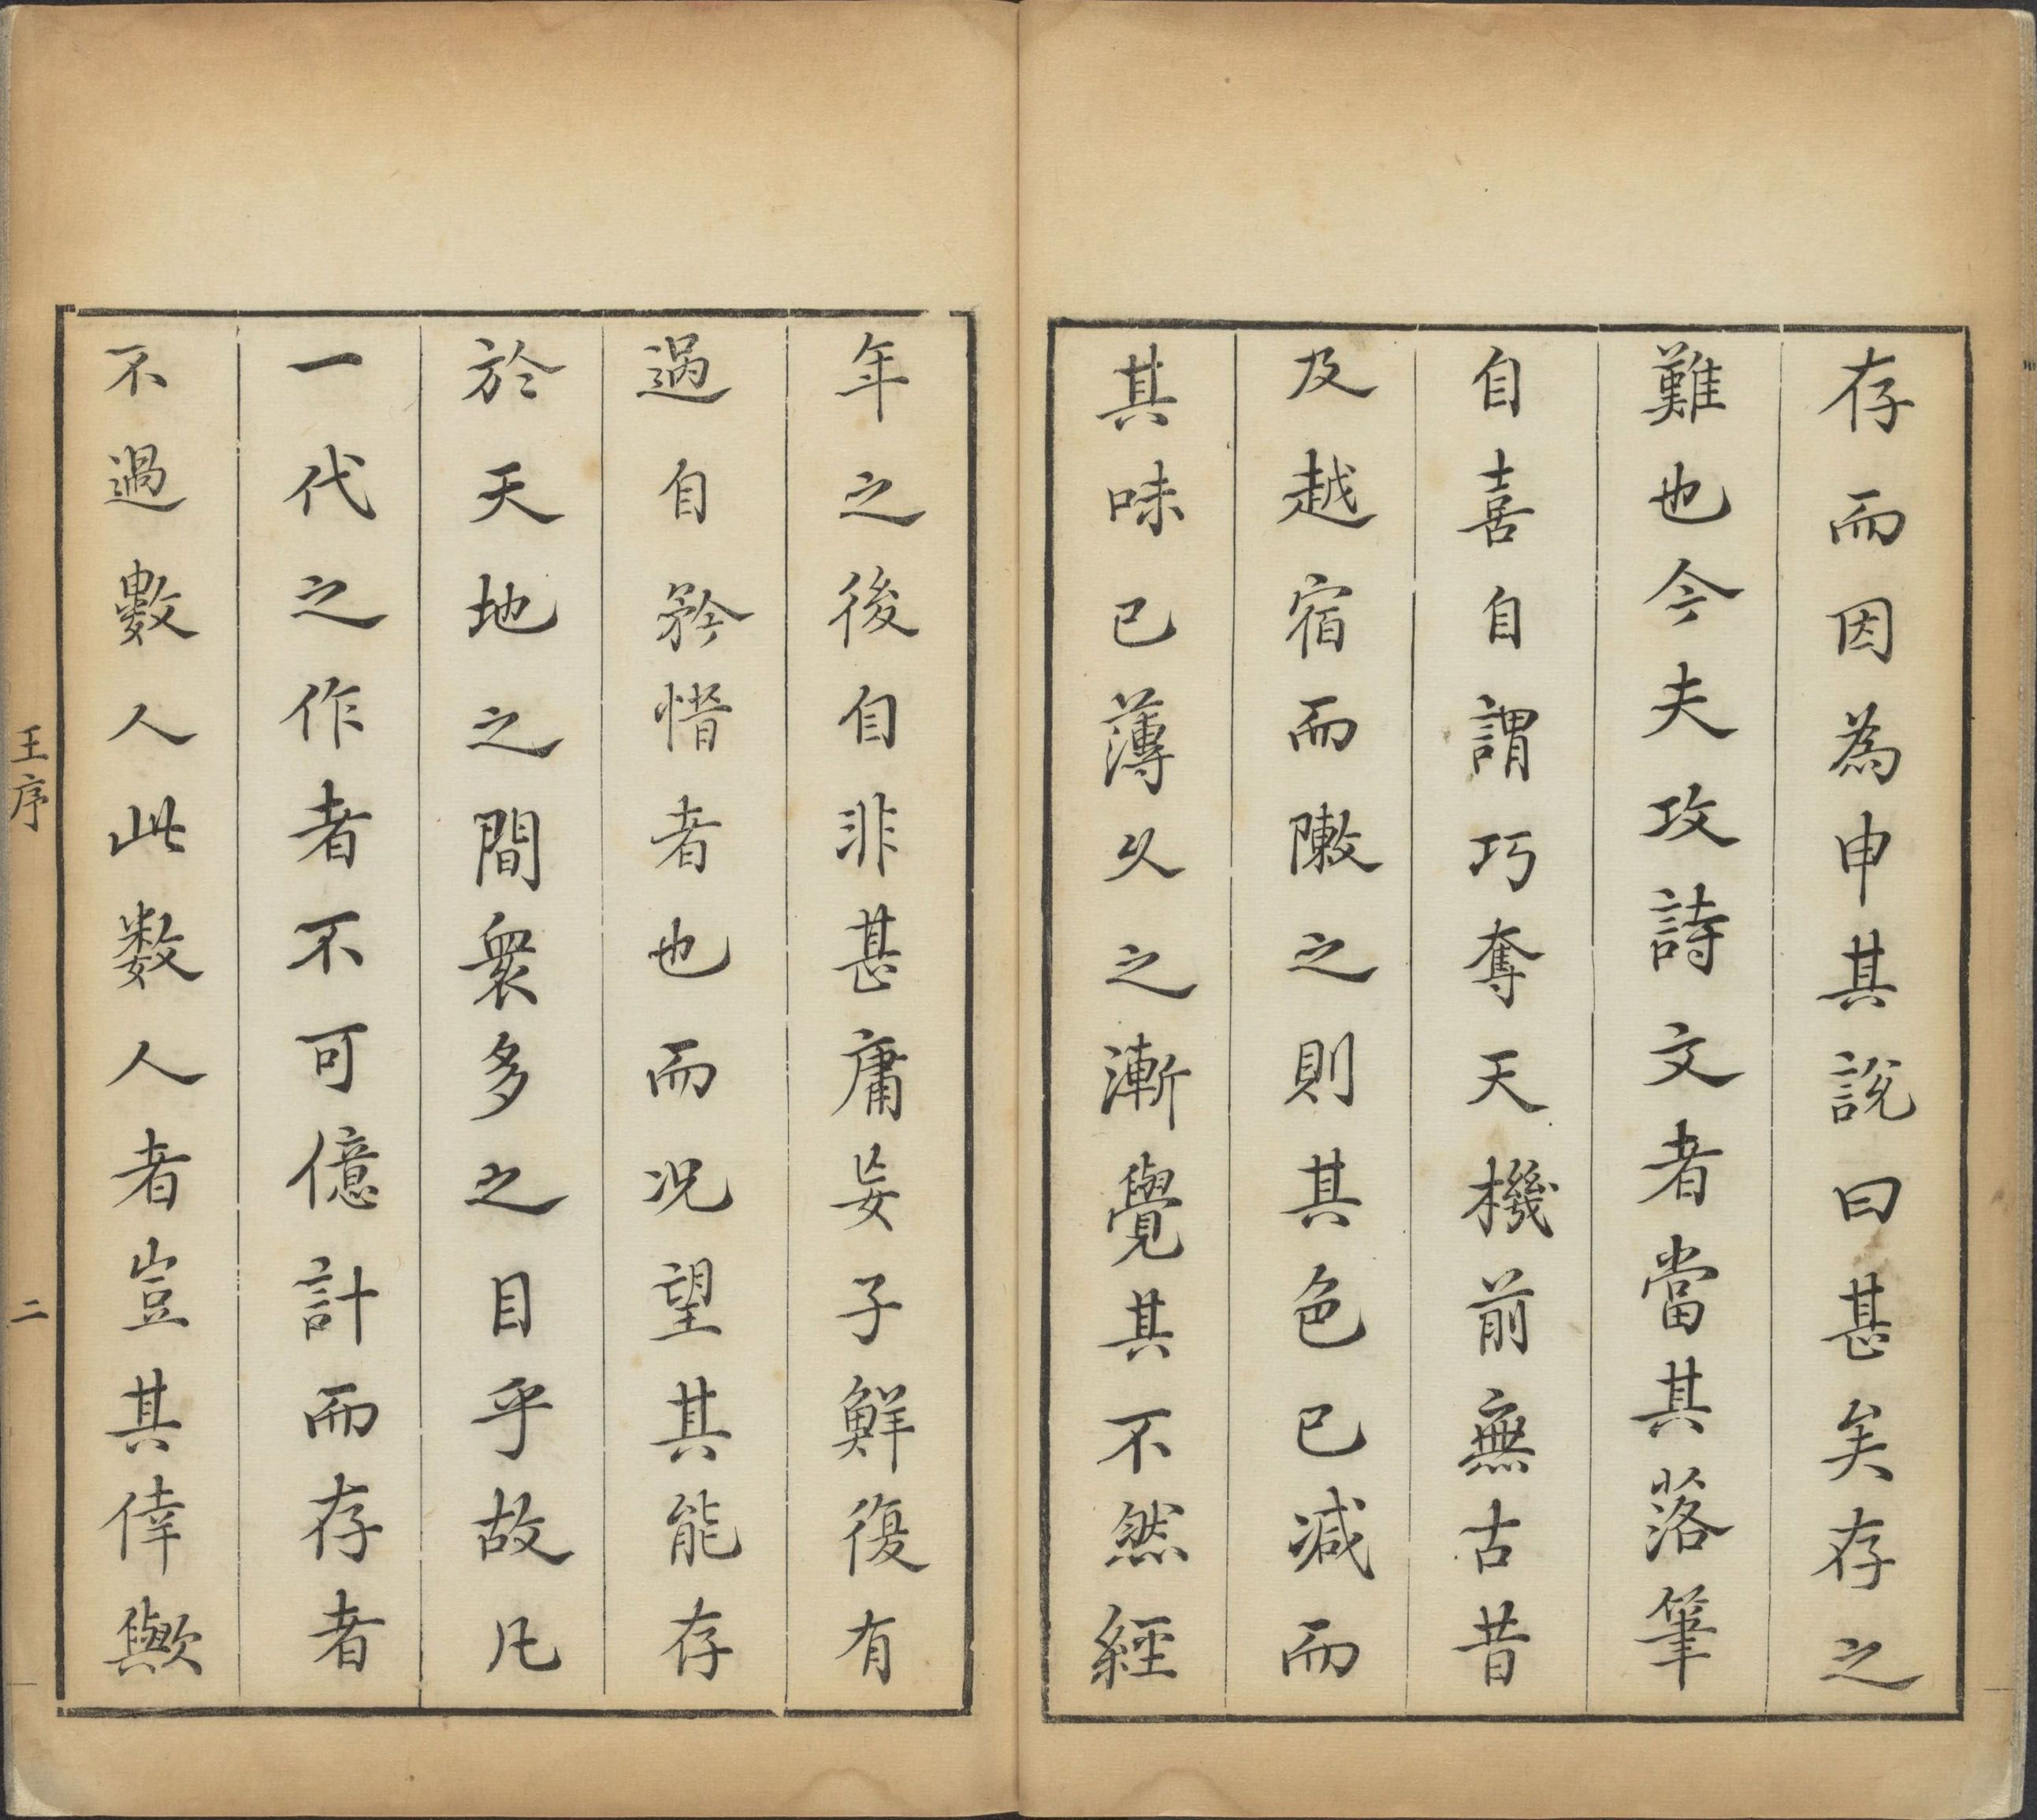 存而因為申其說曰甚矣存之
難也今夫攻詩文者當其落筆
自喜自謂巧奪天機前無古昔
及越宿而陳之則其色已減而
其味已薄久之漸覺其不然經
年之後自非甚庸妄子鮮復有
過自矜惜者也而況望其能存
於天地之間眾多之目乎故凡
一代之作者不可億計而存者
不過數人此數人者豈其倖歟
王序
二